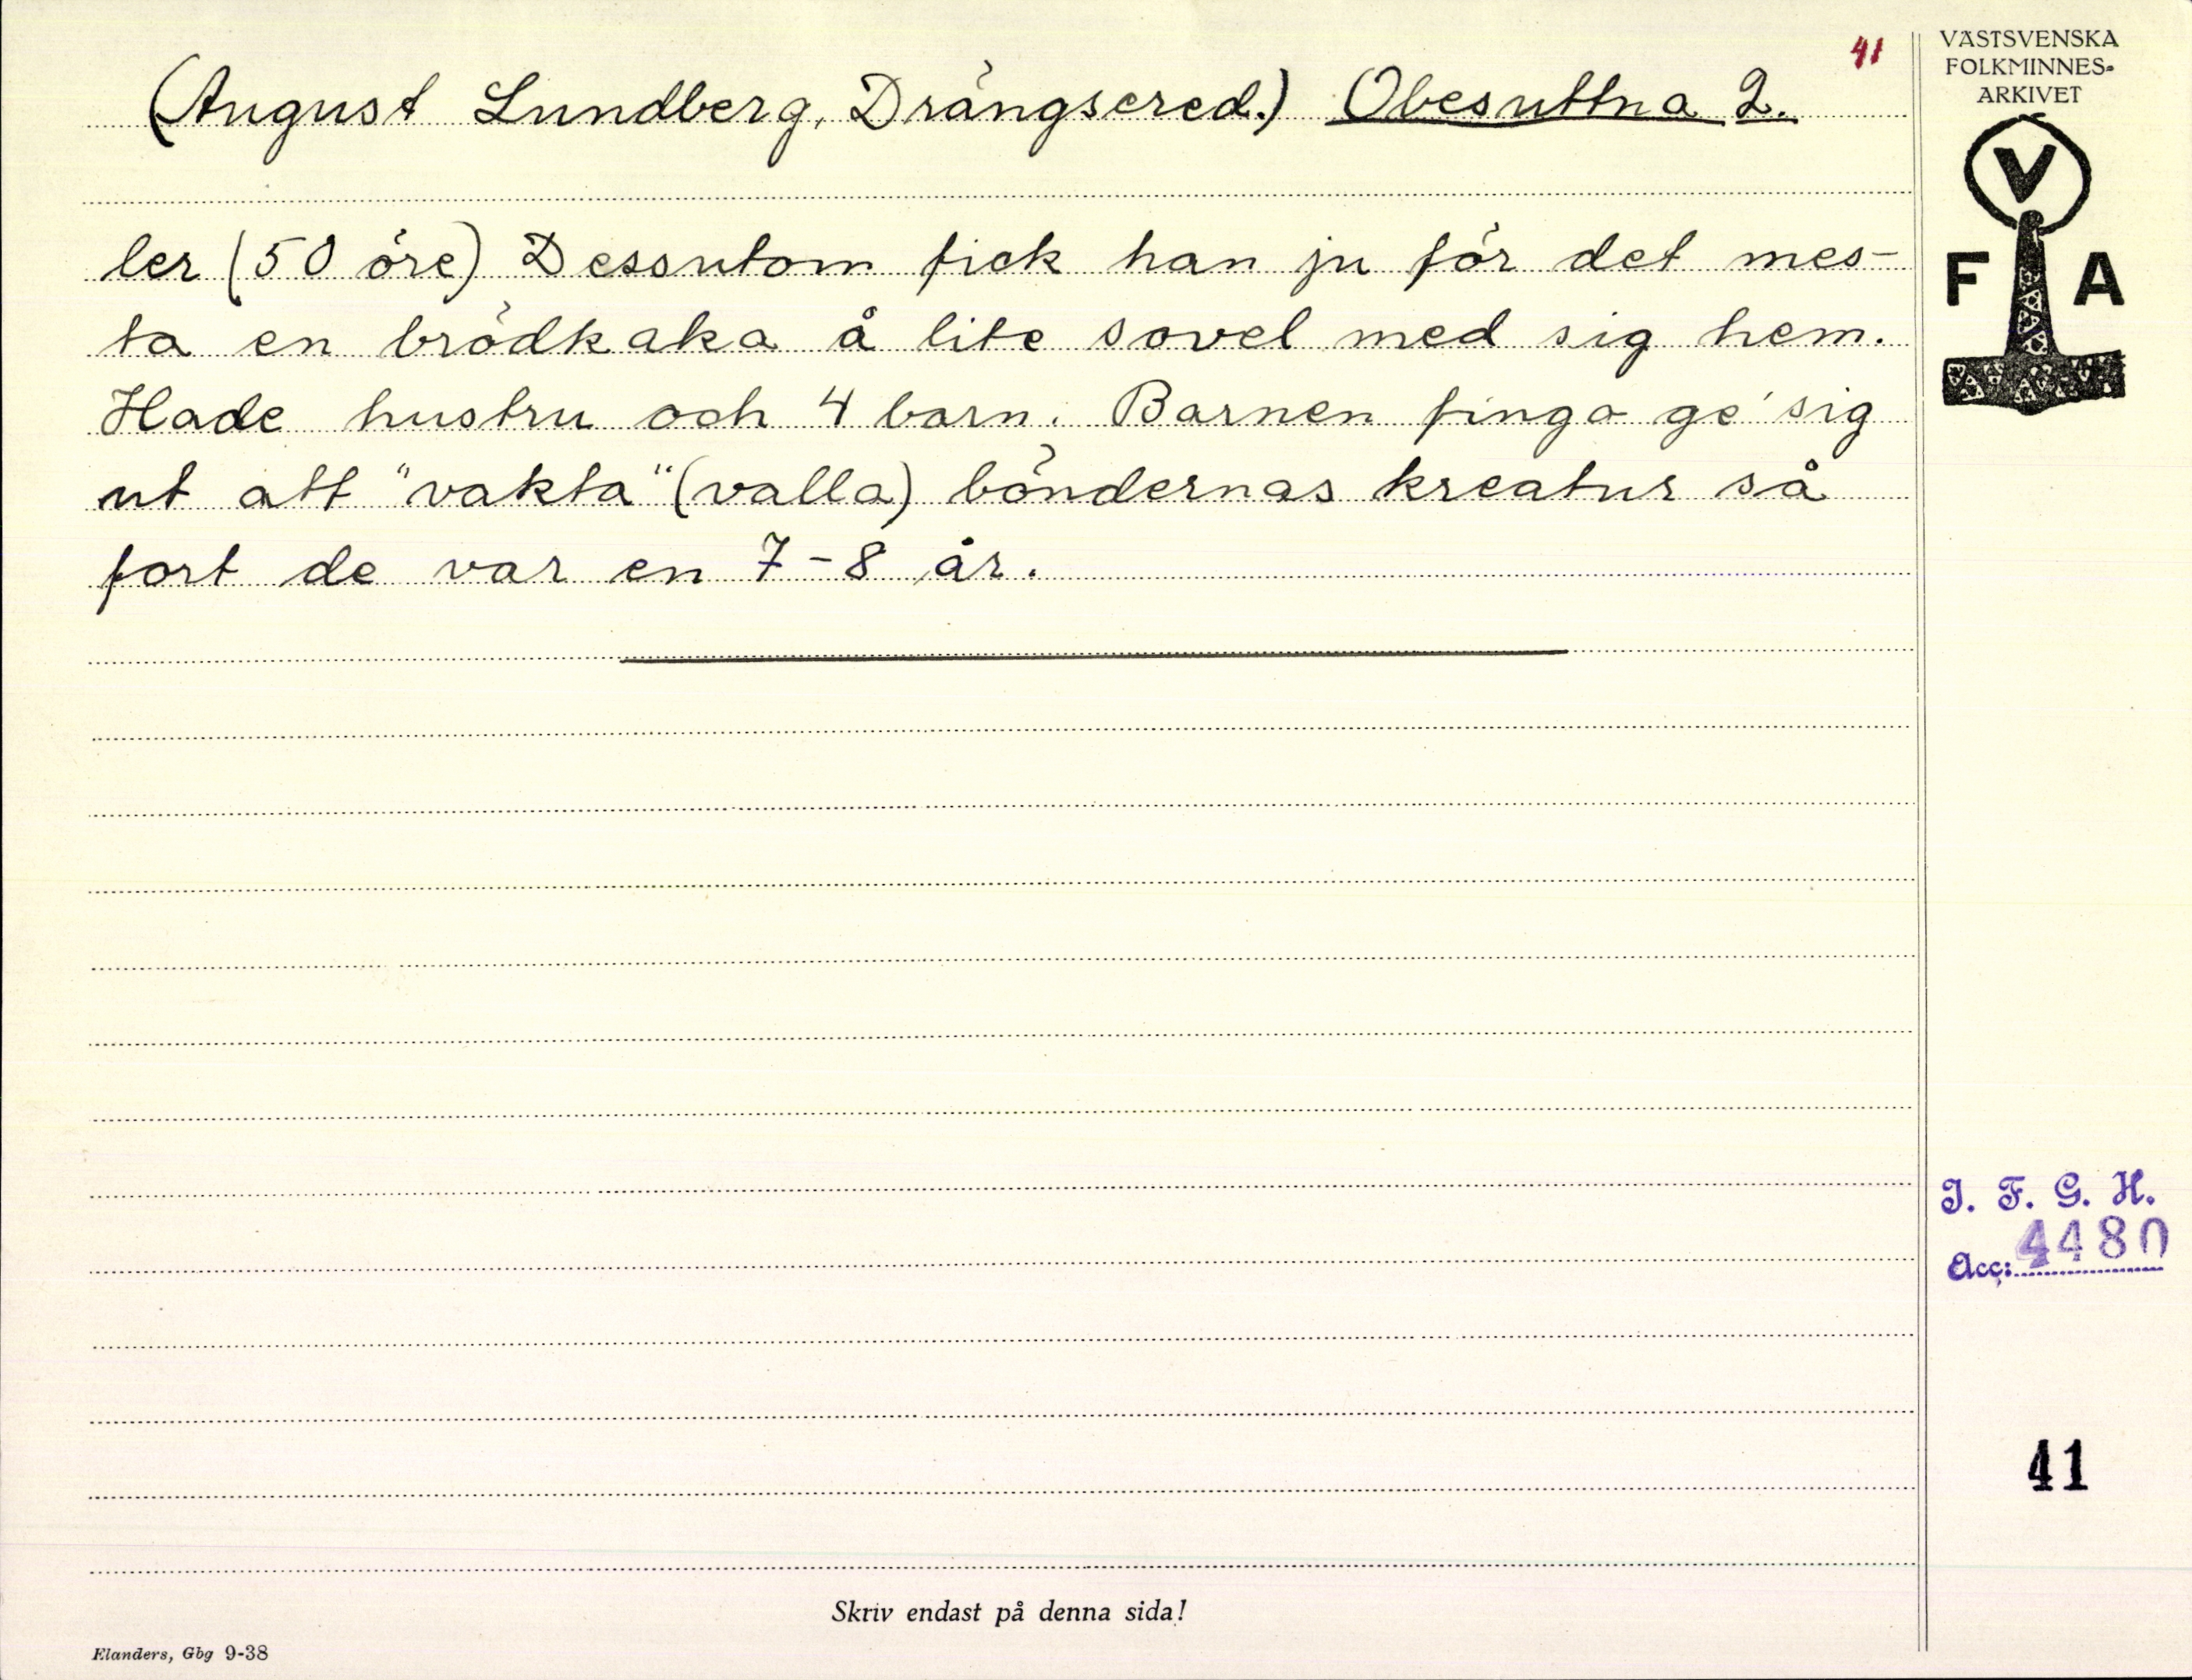 41
(August Lundberg, Drängsered.) Obesuttna 2.
ler (50 öre) Dessutom fick han ju för det mes-
ta en brödkaka å lite sovel med sig hem.
Hade hustru och 4 barn. Barnen fingo ge' sig
ut att "vakta" (valla) böndernas kreatur så
fort de var en 7-8 år.
VÄSTSVENSKA
FOLKMINNES-
ARKIVET
V
F A
I. F. G. H.
Acc: 4480
41
Skriv endast på denna sida!
Elanders, Gbg 9-38